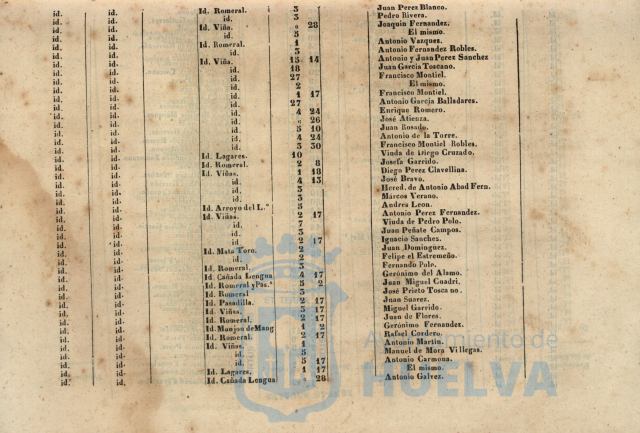 id. id. Id. Romeral. 3 Juan Perez Blanco.
id. id. id. 3 Pedro Rivera.
id. id. Id. Viña. » 28 Joaquin Fernandez.
id. id. id. 5 El mismo.
id. id. Id. Romeral. 1 Antonio Vazquez.
id. id. id. 3 Antonio Fernandez Robles.
id. id. Id. Viña. 15 14 Antonio y Juan Perez Sanchez
id. id. id. 18 Juan Garcia Toscano.
id. id. id. 27 Francisco Montiel.
id. id. id. 2 El mismo.
id. id. id. 1 17 Francisco Montiel.
id. id. id. 27 Antonio Garcia Balladares.
id. id. id. 4 24 Enrique Romero.
id. id. id. » 26 José Atienza.
id. id. id. 5 10 Juan Rosado.
id. id. id. 4 24 Antonio de la Torre.
id. id. id. 3 30 Francisco Montiel Robles.
id. id. Id. Lagares. 10 Viuda de Diego Cruzado.
id. id. Id. Romeral. 2 8 Josefa Garrido.
id. id. Id. Viñas. 1 18 Diego Perez Clavellina.
id. id. id. 4 15 José Bravo.
id. id. id. 3 Hered. de Antonio Abad Fern.
id. id. id. 3 Marcos Verano.
id. id. Id. Arroyo del L.º 5 Andres Leon.
id. id. Id. Viñas. 2 17 Antonio Perez Fernandez.
id. id. id. 7 Viuda de Pedro Polo.
id. id. id. 3 Juan Peñate Campos.
id. id. id. 2 17 Ignacio Sanchez.
id. id. Id. Mata Toro. 2 Juan Dominguez.
id. id. id. 2 Felipe el Estremeño.
id. id. Id. Romeral. 3 Fernando Polo.
id. id. Id. Cañada Lengua 4 17 Gerónimo del Alamo.
id. id. Id. Romeral y Pas.ª 5 2 Juan Miguel Cuadri.
id. id. Id. Romeral 3 José Prieto Toscano.
id. id. Id. Pasadilla. 2 17 Juan Suarez.
id. id. Id. Viñas. 5 17 Miguel Garrido.
id. id. Id. Romeral. 2 17 Juan de Flores.
id. id. Id. Monjos de Mang 1 2 Gerónimo Fernandez.
id. id. Id. Romeral. 2 17 Rafael Cordero.
id. id. Id. Viñas. 1 Antonio Martin.
id. id. id. 5 Manuel de Mora Villegas.
id. id. id. 5 17 Antonio Carmona.
id. id. Id. Lagares. 1 17 El mismo.
id. id. Id. Cañada Lengua » 28 Antonio Galvez.
Ayuntamiento de
HUELVA